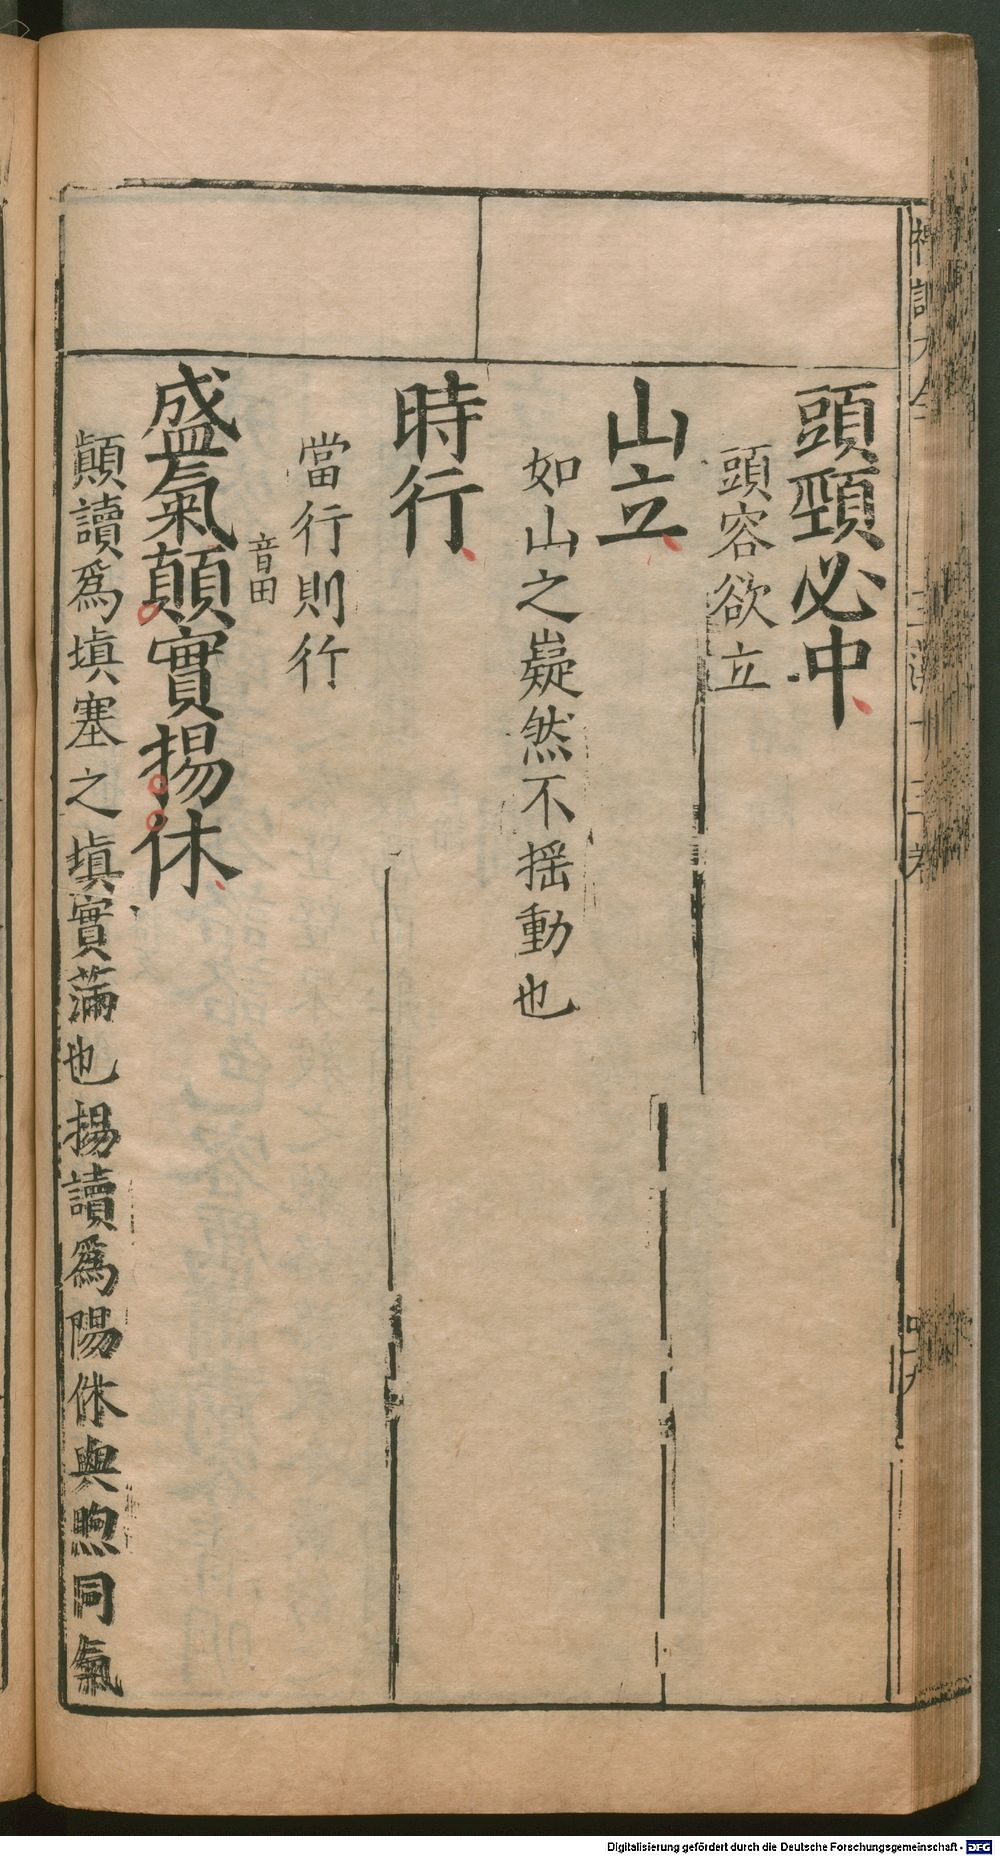 頭頸必中
頭容欲立
山立
如山之嶷然不揺動也
時行
當行則行
音田
盛氣顛實揚休
顛讀爲塡塞之塡實滿也揚讀爲陽休與煦同氣
Digitalisierung gefördert durch die Deutsche Forschungsgemeinschaft - DFG